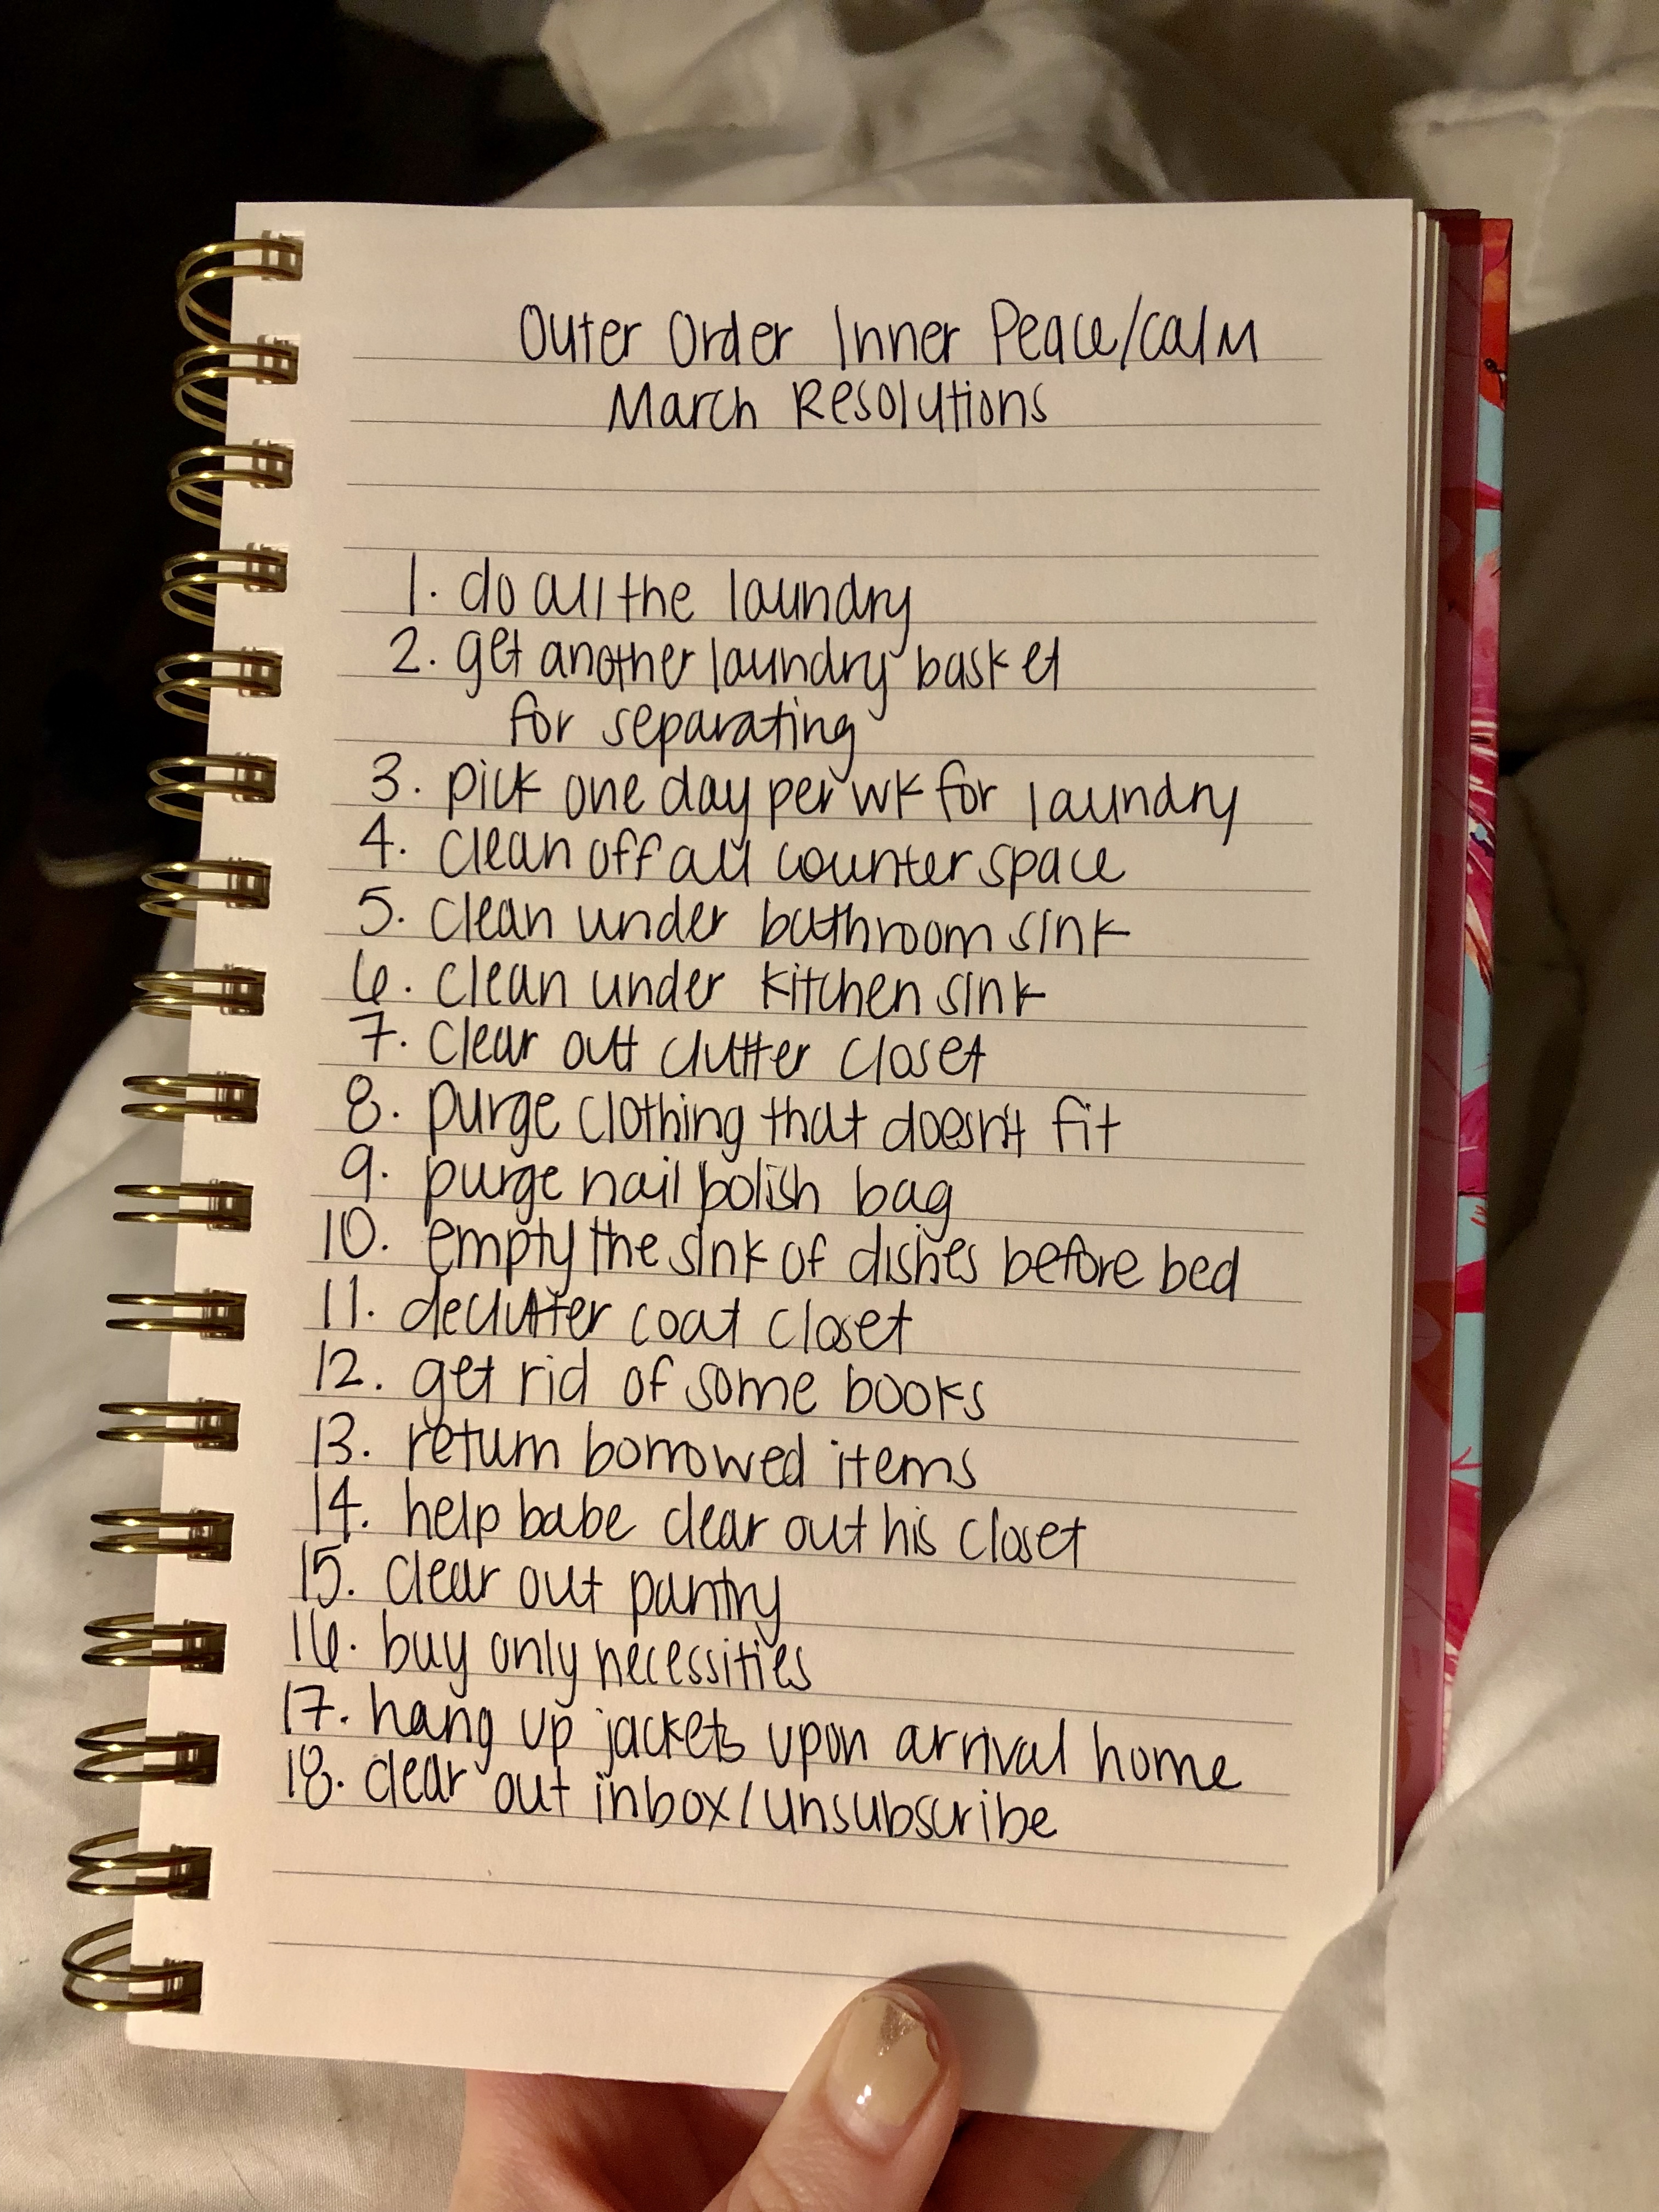 Outer Order Inner Peace/calm
March Resolutions
1. do all the laundry
2. get another laundry basket
for separating
3. pick one day per wk for laundry
4. clean off all counter space
5. clean under bathroom sink
6. clean under kitchen sink
7. clear out clutter closet
8. purge clothing that doesn't fit
9. purge nail polish bag
10. empty the sink of dishes before bed
11. declutter coat closet
12. get rid of some books
13. return borrowed items
14. help babe clear out his closet
15. clear out pantry
16. buy only necessities
17. hang up jackets upon arrival home
18. clear out inbox/unsubscribe